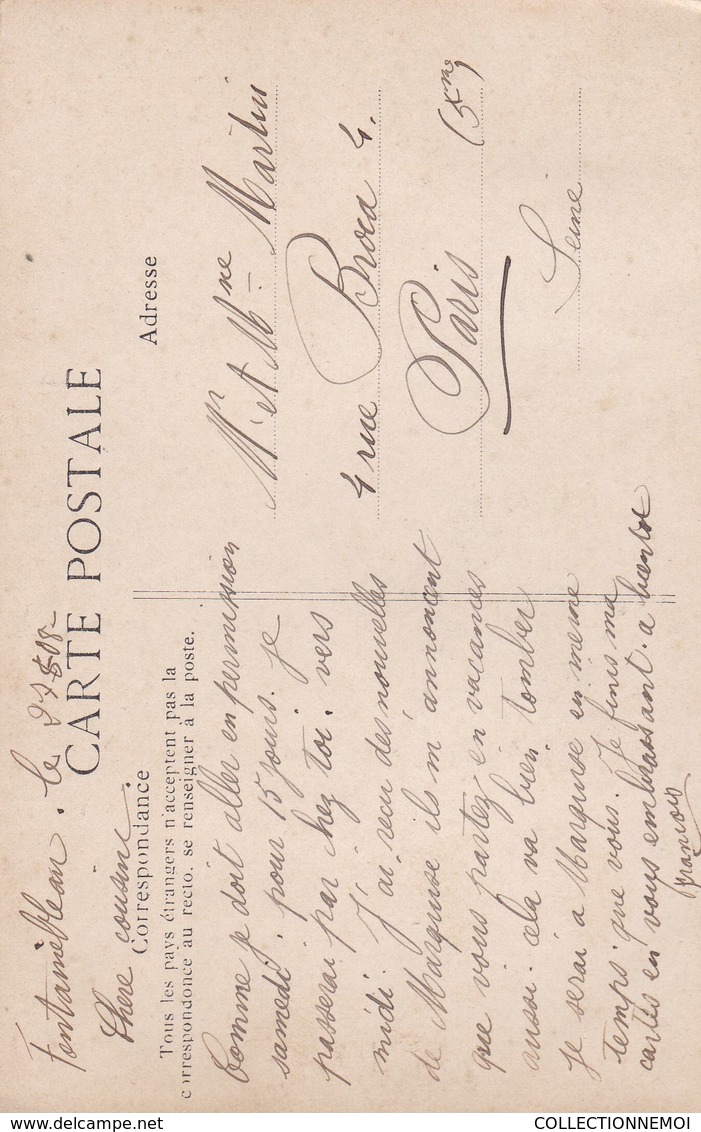 Fontainebleau. le 27-5-08-
CARTE POSTALE
Chere cousine
Correspondance
Tous les pays étrangers n'acceptent pas la
correspondonce au recto. se renseigner à la poste.
Comme je doit aller en permission
samedi. pour 15 jours. je
passerai par chez toi. vers
midi. J'ai recu des nouvelles
de Marquise ils m'annoncent
que vous partez en vacances
aussi. cela va bien tomber
je serai a Marquise en meme
temps. que vous. Je finis ma
carte en vous embrassant. a bientot
François
Adresse
Mr et Mme Martin
4 rue Broca 4.
Paris (5eme)
Seine
COLLECTIONNEMOI